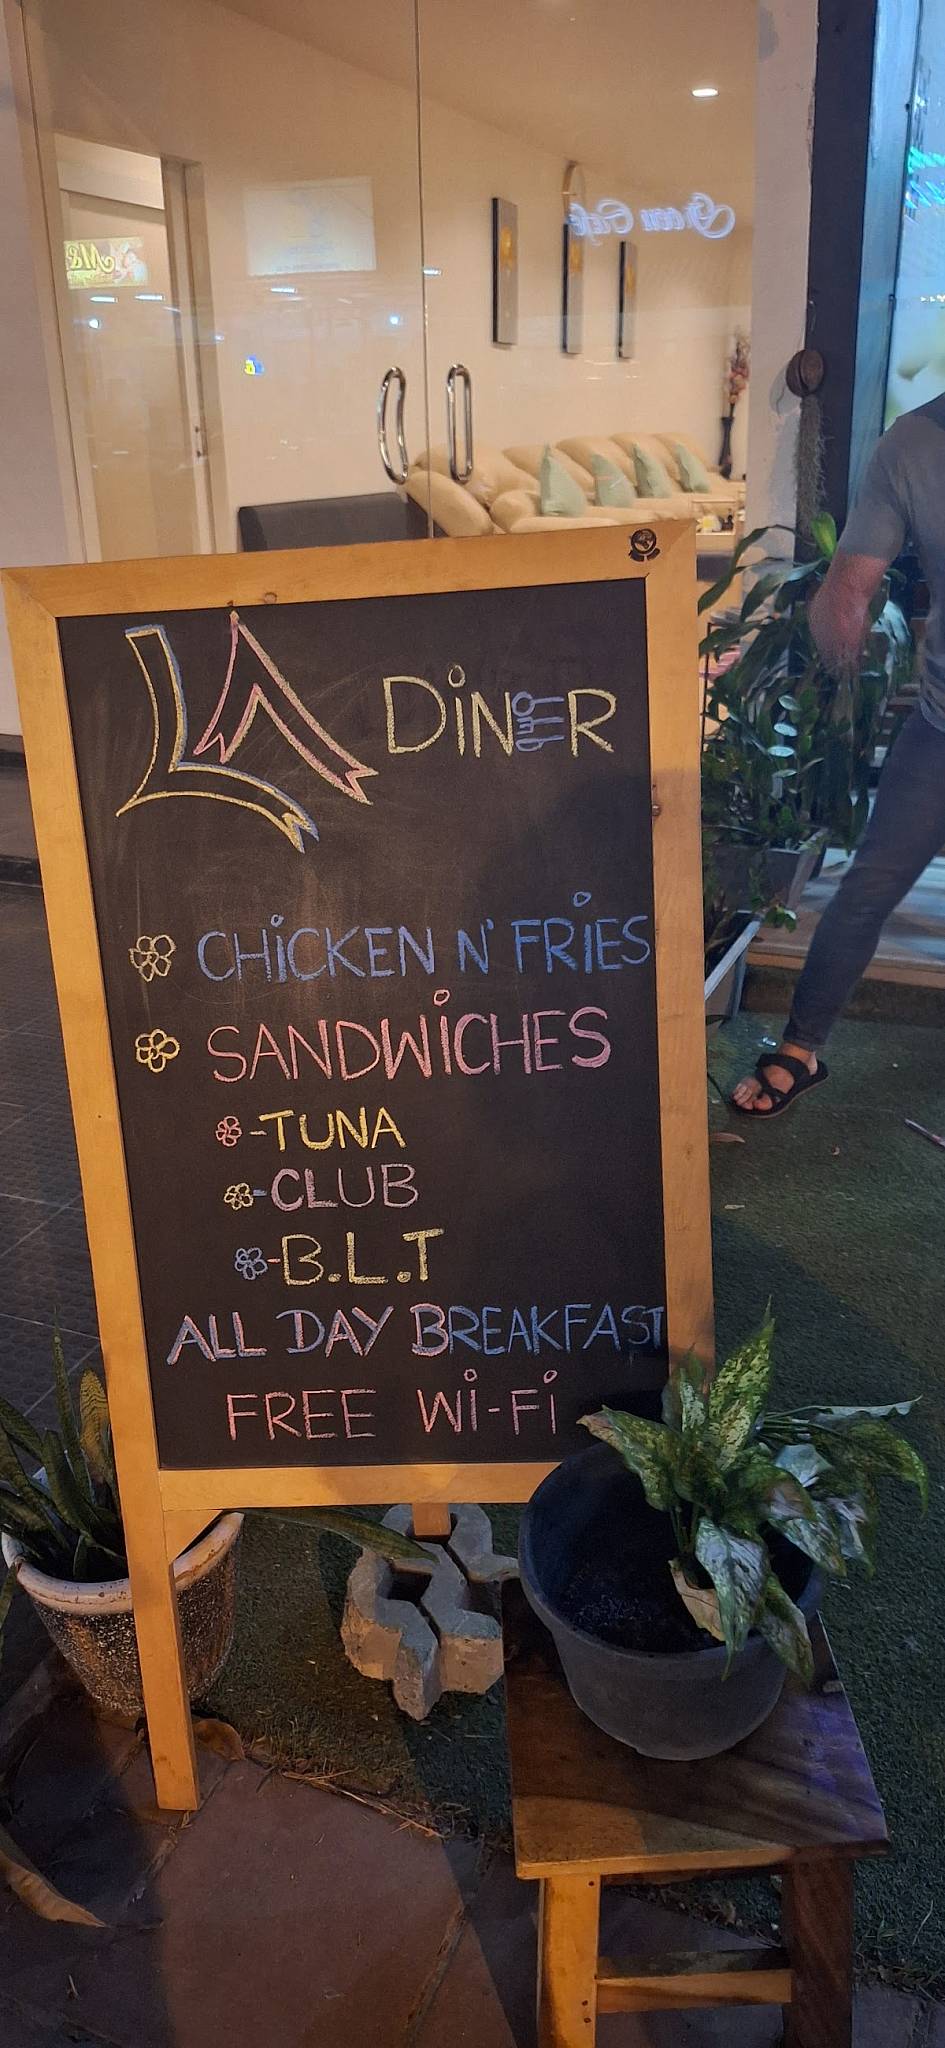 LA DiNER
CHiCKEN N' FRiES
SANDWiCHES
-TUNA
-CLUB
-B.L.T
ALL DAY BREAKFAST
FREE Wi-Fi